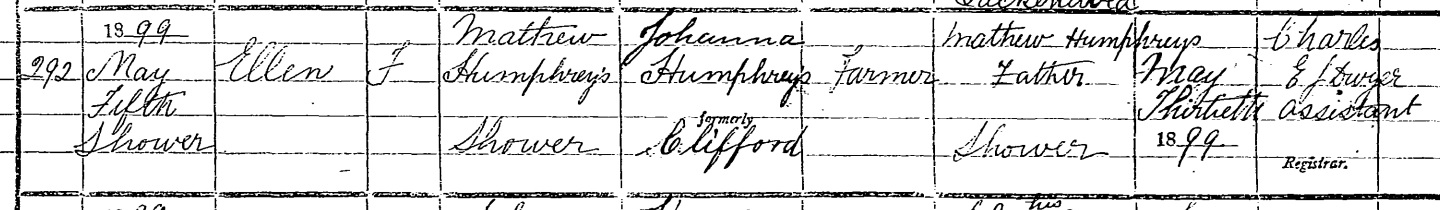 1899 Mathew Johanna Mathew Humphreys Charles
292 May Ellen F Humphreys Humphreys Farmer Father May E J Dwyer
Fifth Thirtieth assistant
formerly
Shower Shower Clifford Shower 1899
Registrar.
his